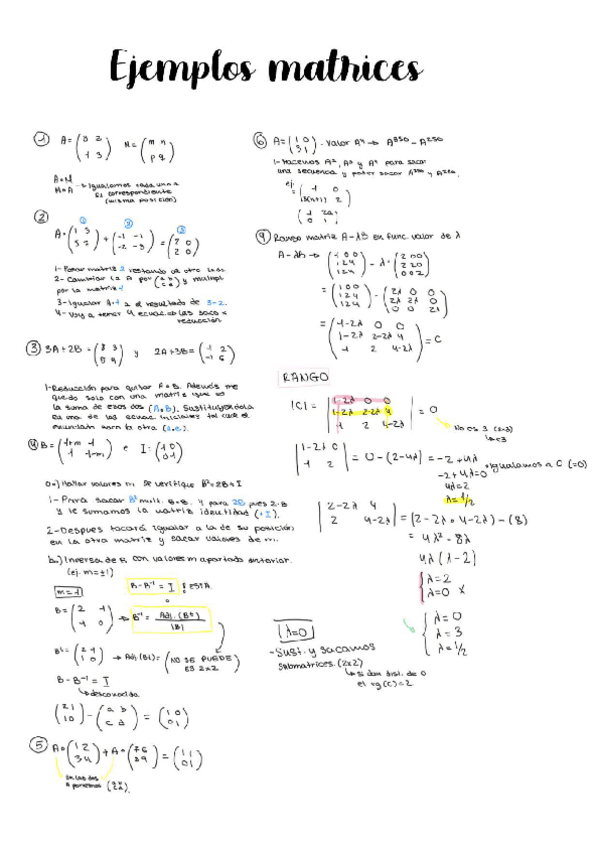 Ejemplos matrices
① A = (3 2 / -1 3) M = (m n / p q)
A·M
M·A → Igualamos cada una a
su correspondiente
(misma posición)
②
A·(1 3 / 5 2) + (-1 -1 / -2 -3) = (2 0 / 2 0)
1- Pasar matriz 2 restando al otro lado.
2- Cambiar la A por (a b / c d) y multipl.
por la matriz 1
3- Igualar A·1 a el resultado de 3-2.
4- Voy a tener 4 ecuaciones saco x
reducción
③ 3A+2B = y 2A+3B = (-1 2 / -1 6)
1- Reducción para quitar A o B. Además me
quedo solo con una matriz que es
la suma de esas dos (A o B). Sustituyéndola
en una de las ecuac. iniciales tal como el
enunciado sacar la otra (A o B).
④ B = (1+m -1 / 1 1-m) e I: (1 0 / 0 1)
a.) Hallar valores m se verifique B²=2B+I
1- Para sacar B² mult. B·B. Y para 2B pues 2·B
y le sumamos la matriz identidad (+I).
2- Despues tocará igualar a la de su posición
en la otra matriz y sacar valores de m.
b.) Inversa de B con valores m apartado anterior.
(ej. m=±1)
m=1
B-B⁻¹ = I ESTA
B = (2 -1 / 1 0) → B⁻¹ = Adj.(Bᵗ) / |B|
Bᵗ = (2 1 / -1 0) → Adj.(Bᵗ) = (NO SE PUEDE / ES 2x2)
B-B⁻¹ = I
↳ desconocida
(2 1 / 1 0) - (a b / c d) = (1 0 / 0 1)
⑤ A·(1 2 / 3 4) + A·(7 6 / 8 9) = (1 1 / 0 1)
En las dos
A ponemos
⑥ A = (1 0 / 3 1) · Valor Aⁿ → A³⁵⁰ - A²⁵⁰
1- Hacemos A², A³ y A⁴ para sacar
una secuencia y poder sacar
ej:
⑨ Rango matriz A-λB en func. valor de λ
A-λB → (1 0 0 / 1 2 4 / 1 2 4) - λ·(2 0 0 / 2 2 0 / 0 0 2)
= (1 0 0 / 1 2 4 / 1 2 4) - (2λ 0 0 / 2λ 2λ 0 / 0 0 2λ)
= (1-2λ 0 0 / 1-2λ 2-2λ 4 / 1 2 4-2λ) = C
RANGO
|C| = |1-2λ 0 0 / 1-2λ 2-2λ 4 / 1 2 4-2λ| = 0
No es 3 (2x3)
|1-2λ 0 / 1 2| = 0-(2-4λ) = -2+4λ
-2+4λ=0 · Igualamos a C (=0)
4λ=2
λ=1/2
|2-2λ 4 / 2 4-2λ| = (2-2λ · 4-2λ) - (8)
= 4λ²-8λ
4λ(λ-2)
λ=2
λ=0 x
λ=0
λ=3
λ=1/2
λ=0
- Sust. y sacamos
submatrices. (2x2)
↳ si dan dist. de 0
el rg(C)=2